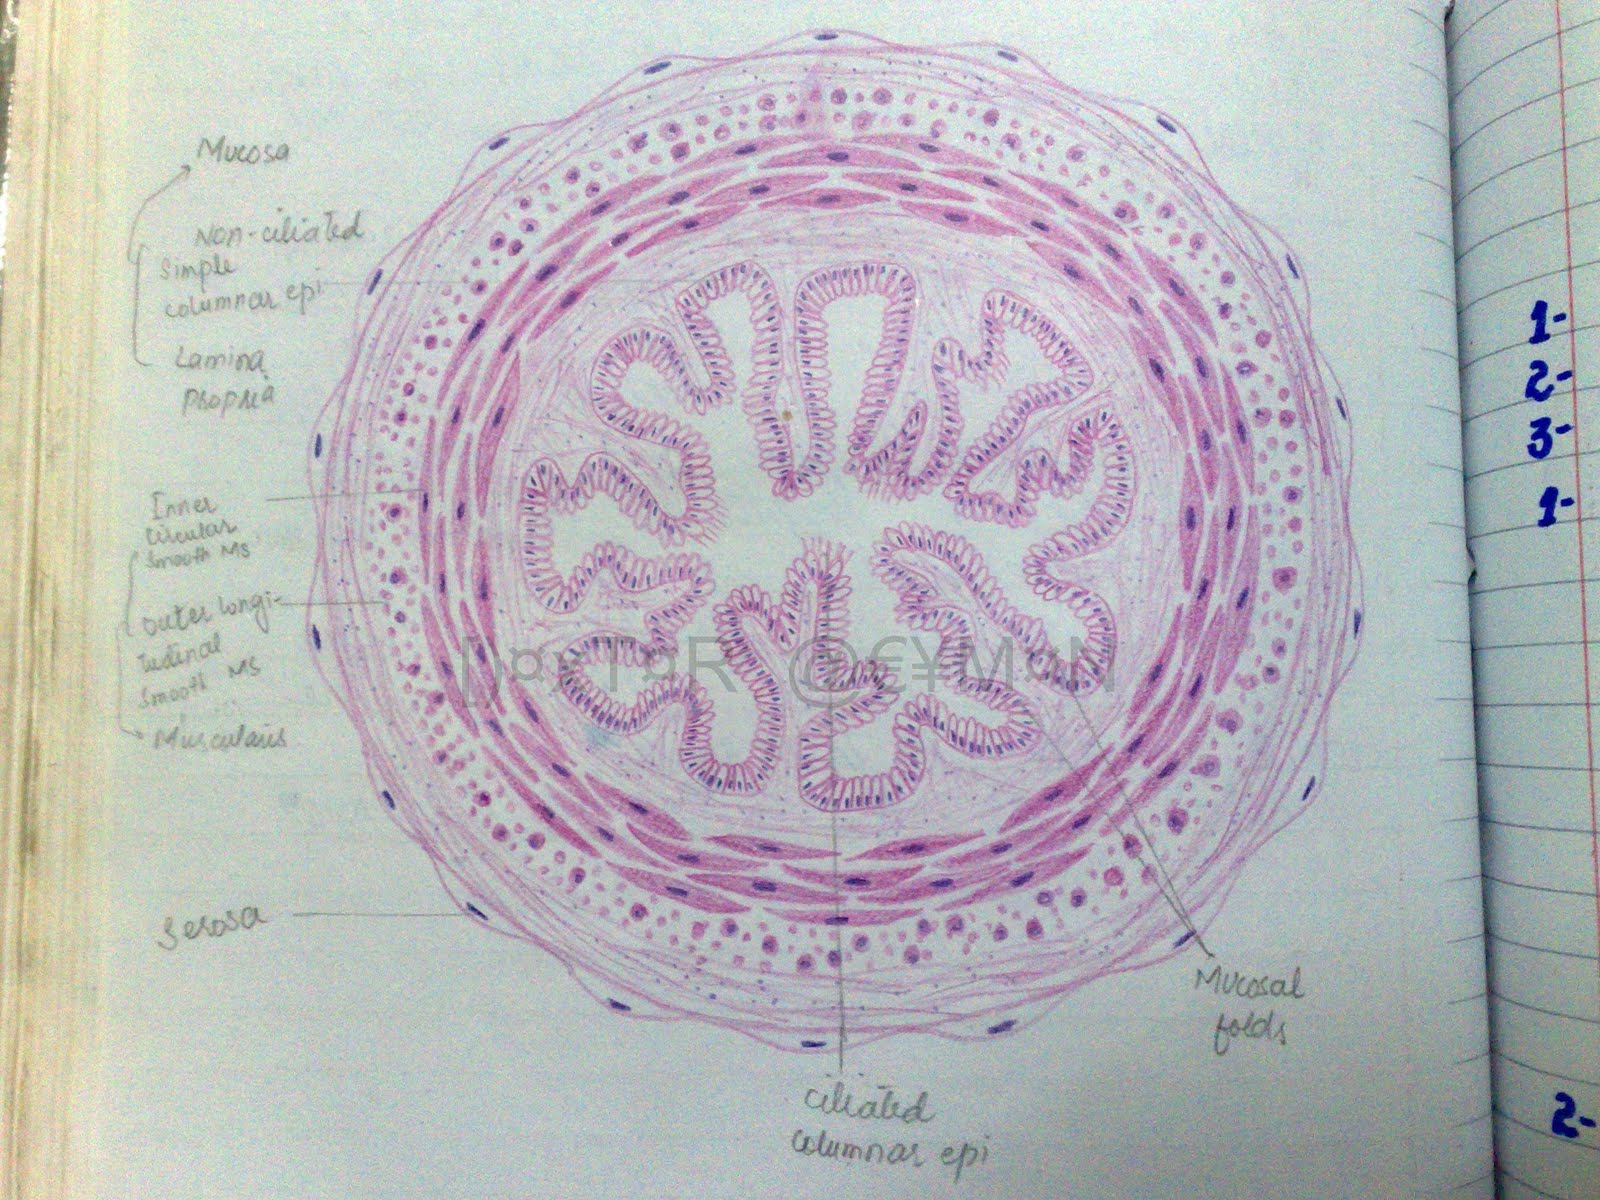 Mucosa
Non-ciliated
simple
columnar epi
Lamina
propria
Inner
circular
smooth MS
outer longi-
tudinal
smooth MS
Muscularis
Serosa
Mucosal
folds
ciliated
columnar epi
1-
2-
3-
1-
2-